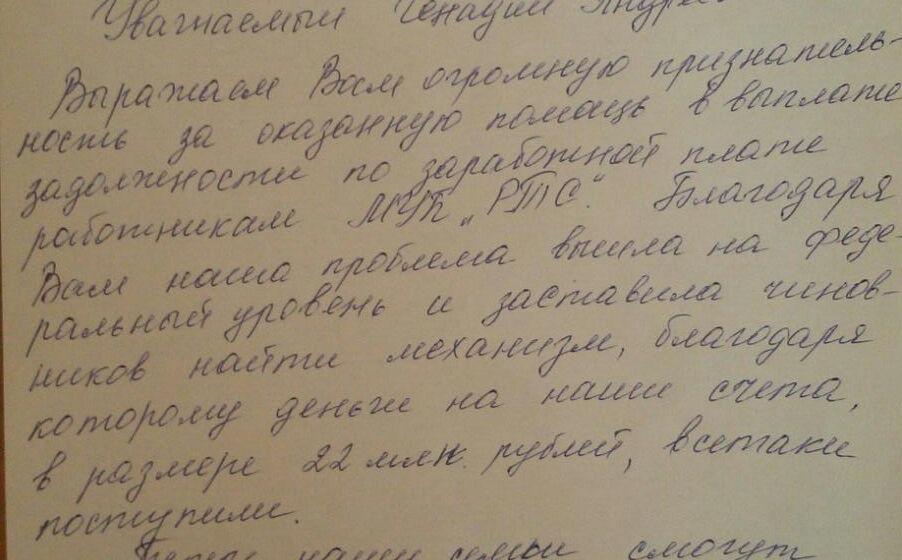 Уважаемый Генадий Андрее
Выражаем Вам огромную признатель-
ность за оказанную помощь в выплате
задолжности по заработной плате
работникам МУП „РТС“. Благодаря
Вам наша проблема вышла на феде-
ральный уровень и заставила чинов-
ников найти механизм, благодаря
которому деньги на наши счета,
в размере 22 млн. рублей, всетаки
поступили.
Теперь наши семьи смогут